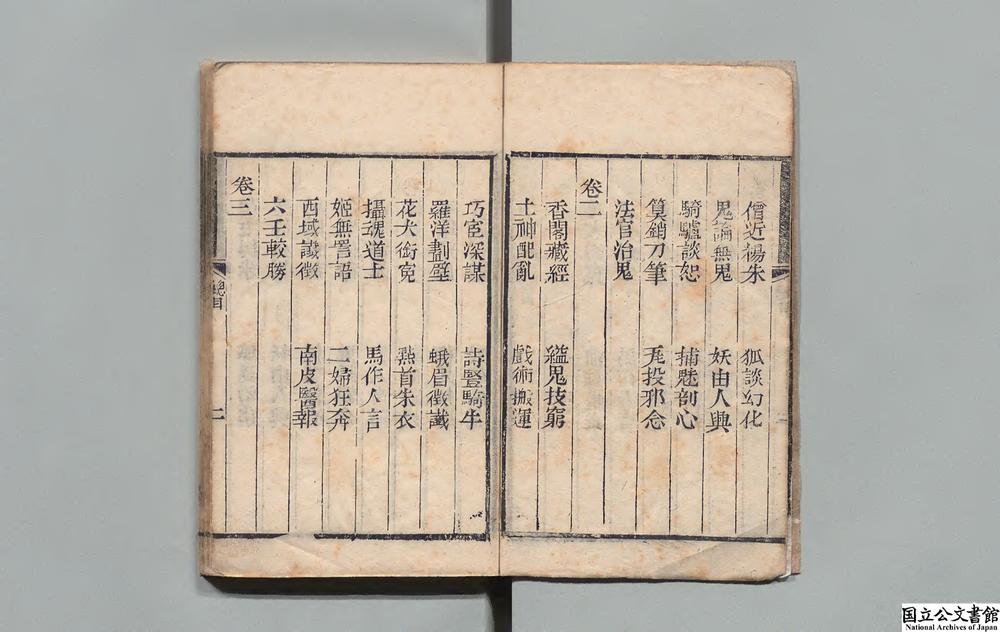 僧近楊朱　狐談幻化
鬼論無鬼　妖由人興
騎驢談恕　捕魅剖心
筧銷刀筆　瓦投邪念
法官治鬼
卷二
香閣藏經　縊鬼技窮
土神配亂　戲術搬運
巧宦深謀　詩豎騎牛
羅洋劃壁　蛾眉徵讖
花犬銜寃　㸃首朱衣
攝魂道士　馬作人言
姬無詈語　二婦狂奔
西域讖徵　南皮醫報
六壬較勝
卷三
總目　二
国立公文書館
National Archives of Japan